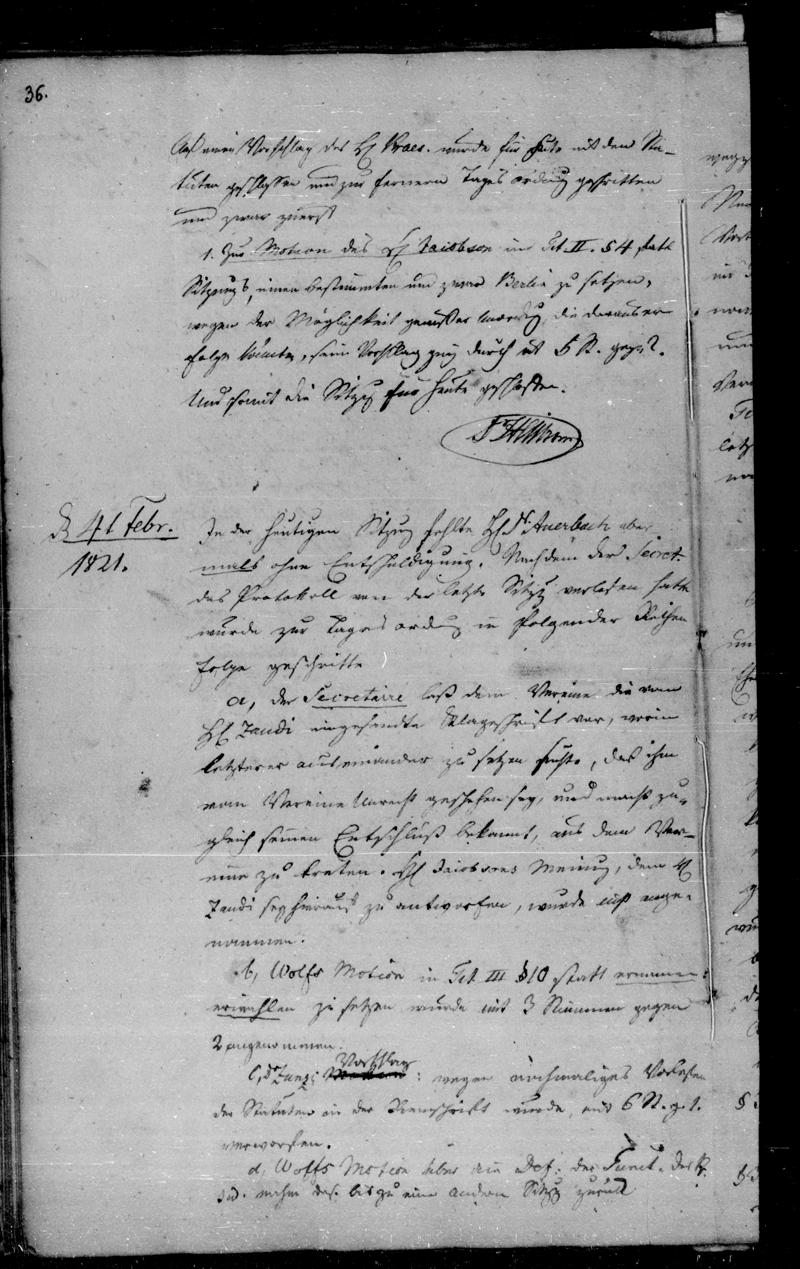 36.
Auf einen Vorschlag des H Praes. wurde für heute mit den Sta-
tuten geschlossen und zur fernern Tagesordnung geschritten
und zwar zuerst
1. Zur Motion des H Jacobson in Tit. II. § 4 statt
Sitzungs, einen bestimmten und zwar Berlin zu setzen,
wegen der Möglichkeit
folgen könnten, sein Vorschlag ging durch mit 5 St. geg. 2.
Und somit die Sitzung für heute geschlossen.
d 4t Febr.
1821.
In der heutigen Sitzung fehlte H Dr. Auerbach aber-
mals ohne Entschuldigung. Nachdem der Secret.
das Protokoll von der letzten Sitzg verlesen hatte
wurde zur Tagesordnug in folgender Reihen
folge geschritten
a, der Secretaire laß dem Vereine die vom
H Zandi eingesandte Klageschrift vor, worin
letzterer auseinander zu setzen suchte, daß ihm
vom Vereine Unrecht geschehen sey, und macht zu-
gleich seinen Entschluß bekannt, aus dem Ver-
eine zu treten. H Jacobsons Meinug, dem H
Zandi sey hierauf zu antworten, wurde nicht ange-
nommen.
b, Wolfs Motion in Tit III § 10 statt ernennen:
erwählen zu setzen wurde mit 3 Stimmen gegen
2 angenommen.
c, Dr Zunz: Vorschlag: wegen nochmaliges Vorlesen
der Statuten in der Reinschrift wurde, mit 6 St. g. 1.
verworfen.
d, Wolfs Motion über die Def: der Funct. des
Ind. nahm ders. bis zu einer andern Sitzg zurück